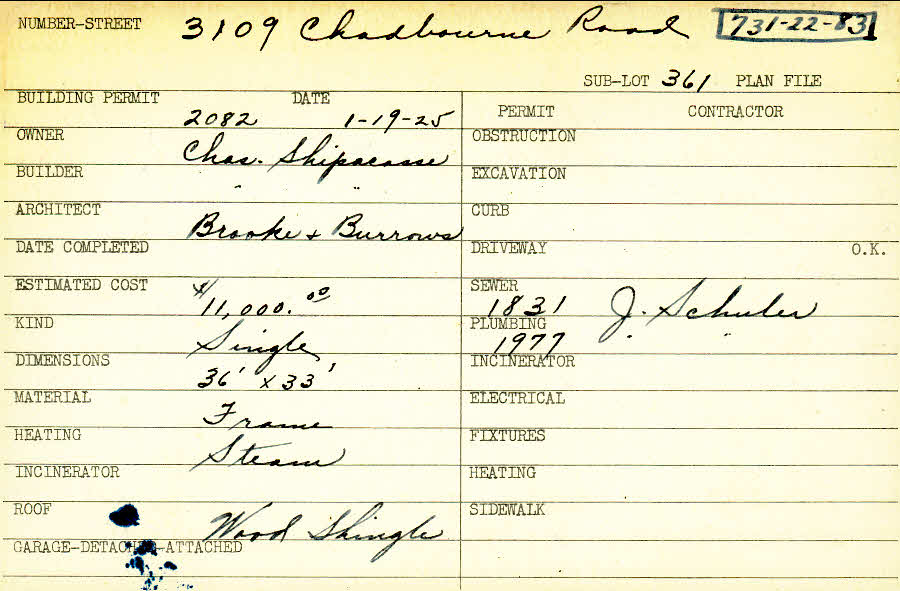 NUMBER-STREET 3109 Chadbourne Road 731-22-83
SUB-LOT 361 PLAN FILE
BUILDING PERMIT DATE
2082 1-19-25
PERMIT CONTRACTOR
OWNER Chas. Shipacasse
OBSTRUCTION
BUILDER " "
EXCAVATION
ARCHITECT Brooke + Burrows
CURB
DATE COMPLETED
DRIVEWAY O.K.
ESTIMATED COST $11,000.00
SEWER 1831 J. Schuler
KIND Single
PLUMBING 1977 " "
DIMENSIONS 36' x 33'
INCINERATOR
MATERIAL Frame
ELECTRICAL
HEATING Steam
FIXTURES
INCINERATOR
HEATING
ROOF Wood Shingle
SIDEWALK
GARAGE-DETACHED-ATTACHED